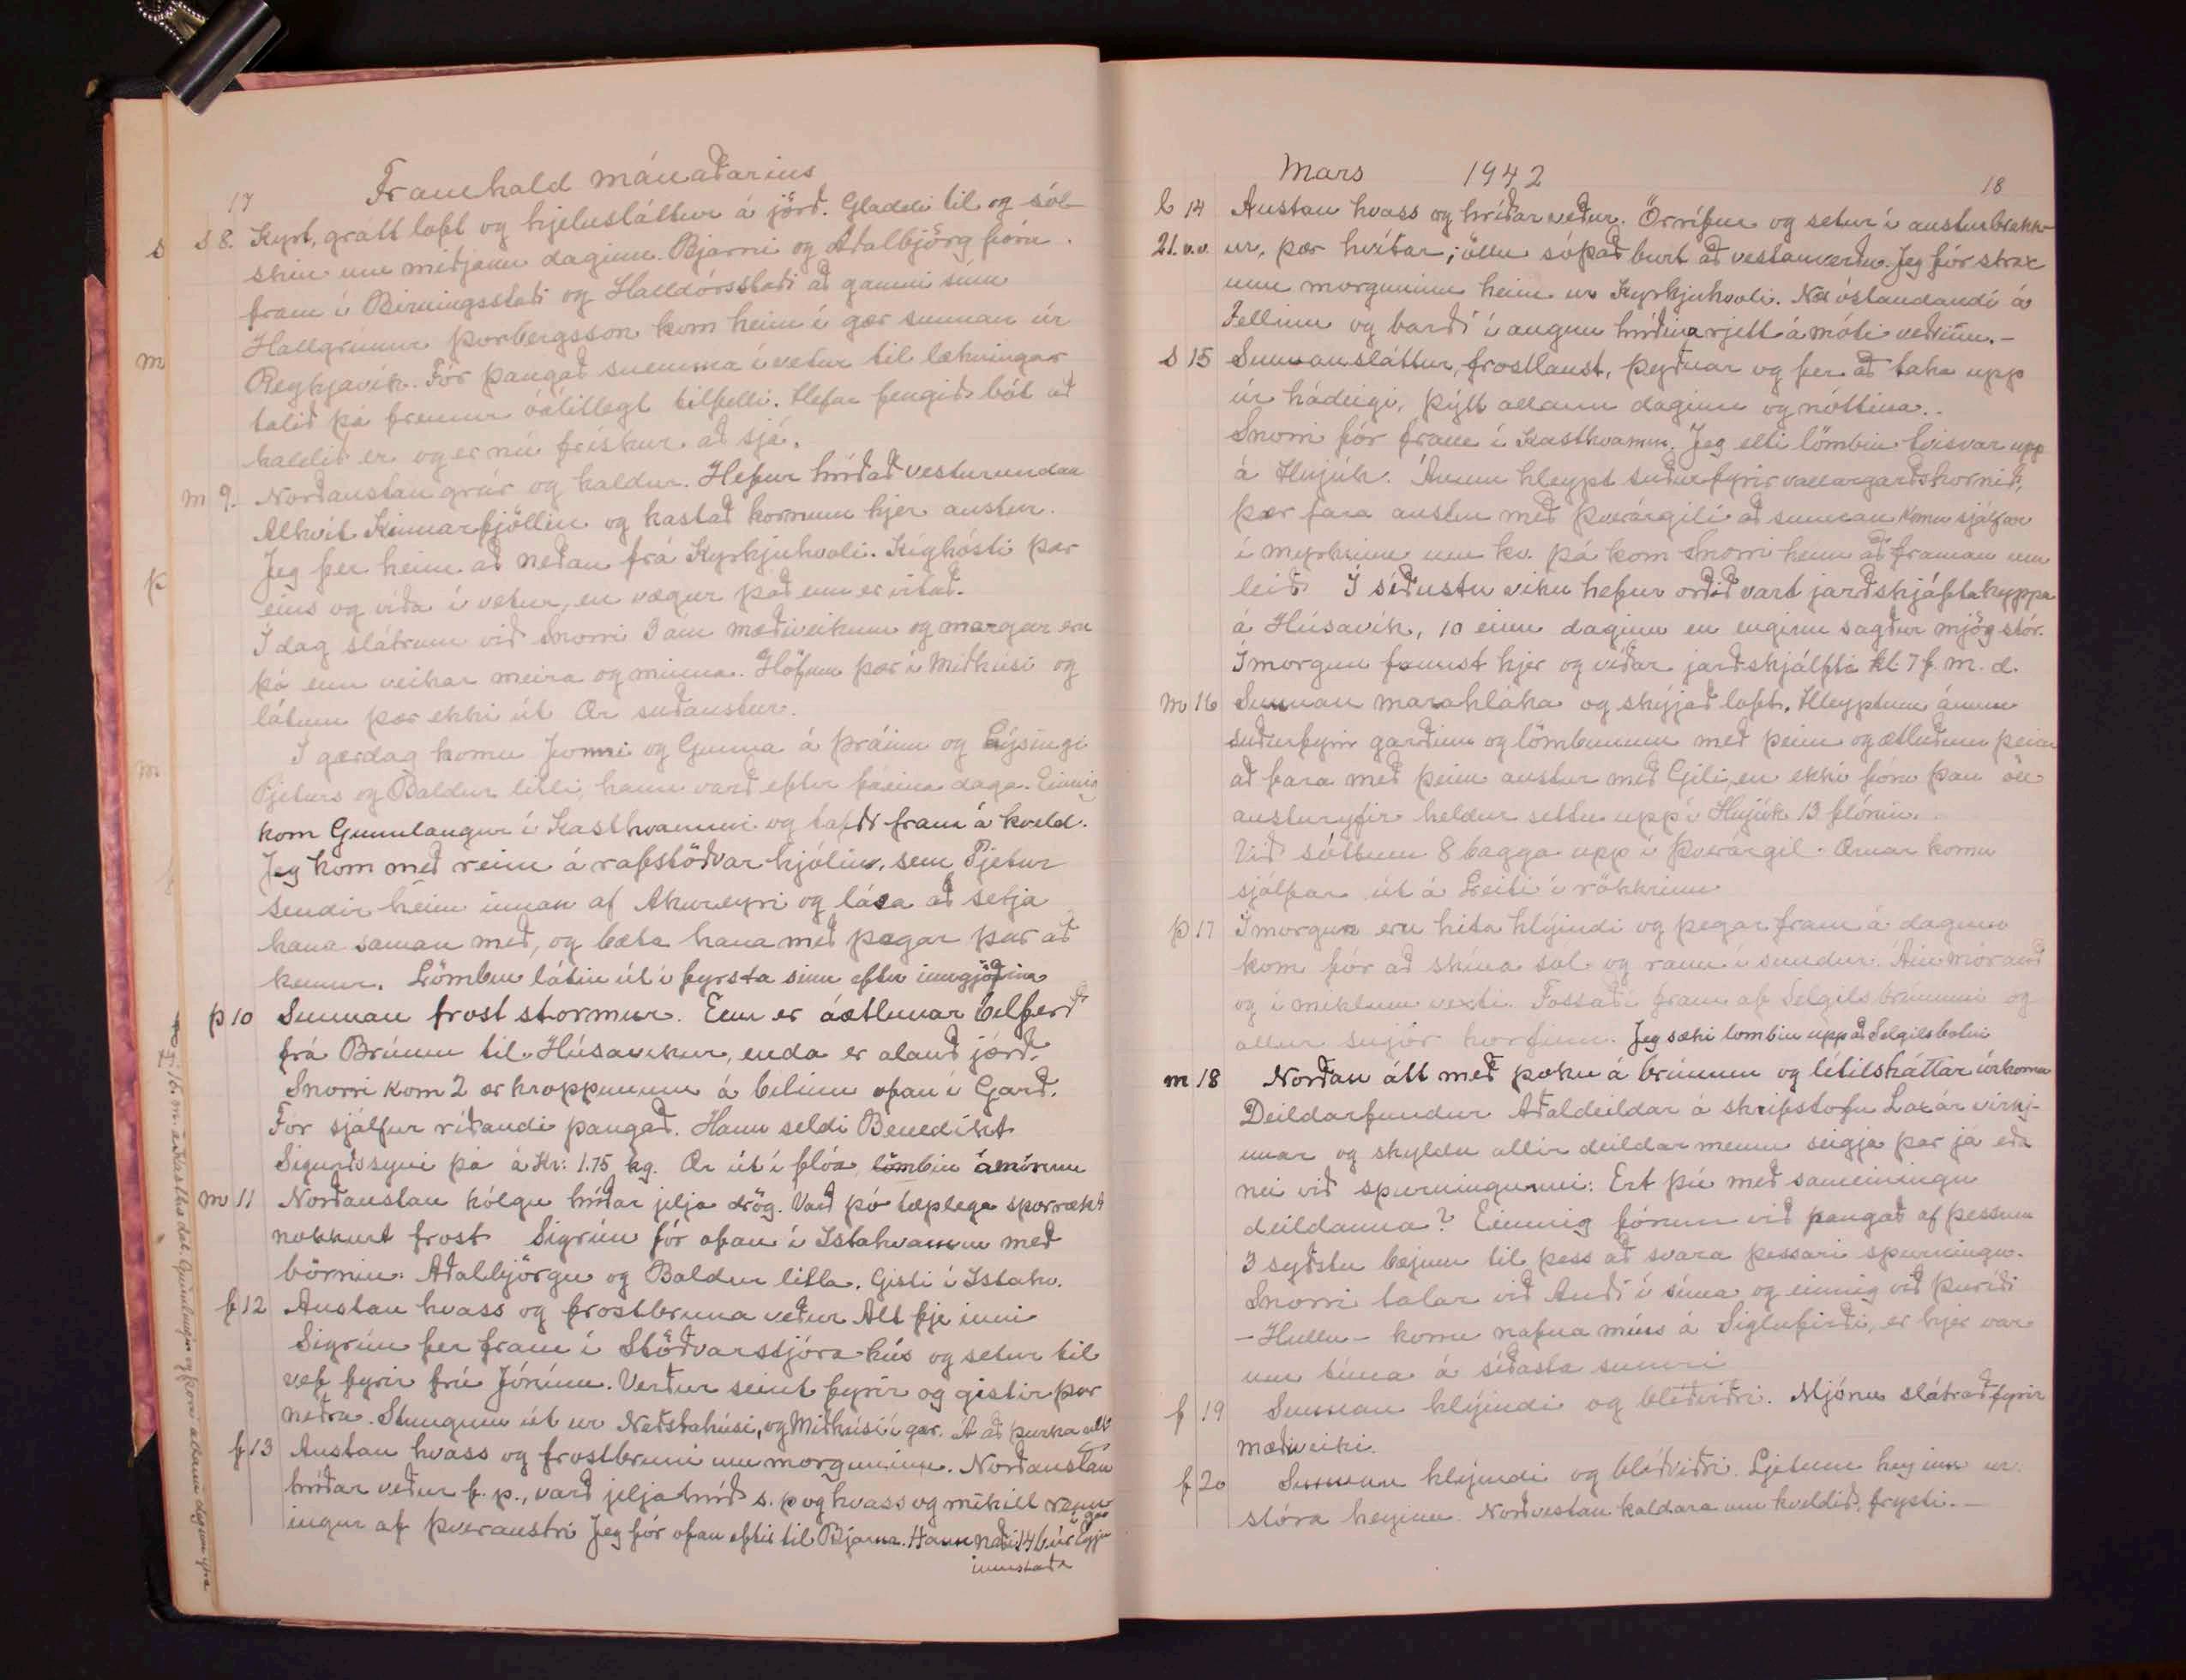 17 Framhald mánaðarins
s 8. Kyrt, grátt loft og hjelusláttur á jörð. Gladdi til og sól
skin um miðjann daginn. Bjarni og Aðalbjörg fóru
fram í Birningsstaði og Halldórsstaði að gamni sínu
Hallgrímur Þorbergsson kom heim í gær sunnan úr
Reykjavík. Fór þangað snemma í vetur til lækningar
talið þá fremur óálitlegt tilfelli. Hefur fengið bót að
haldið er og er nú frískur að sjá.
m 9. Norðaustan grár og kaldur. Hefur hríðað vesturundan
Alhvít Kinnarfjöllin og kastað kornum hjer austur.
Jeg fer heim að neðan frá Kyrkjuhvoli. Kíghósti þar
eins og víða í vetur, en vægur það enn er vitað.
Í dag slátrum við Snorri 3 am mæðiveikum og margar eru
þó enn veikar meira og minna. Höfum þær í Miðhúsi og
látum þær ekki út Ær suðaustur.
Í gærdag komu Jonni og Gunna á Þráinn og Lýsingi
Pjeturs og Baldur litli, hann varð eftir fáeina daga. Einnig
kom Gunnlaugur í Kasthvammi og tafði fram á kveld.
Jeg kom með reim á rafstöðvar hjólin, sem Pjetur
sendir heim innan af Akureyri og lása að setja
hana saman með, og bæta hana með þegar þar að
kemur. Lömbin látin út í fyrsta sinn eftir inngjöfina
þ 10 Sunnan frost stormur. Enn er áætlunar bílferð
frá Brúum til Húsavíkur, enda er alauð jörð.
Snorri kom 2 ærkroppunum á bílinn ofan í Garð.
Fór sjálfur ríðandi þangað. Hann seldi Benedikt
Sigurðssyni þá á Kr: 1.75 kg. Ær út í flóa, lömbin á mónum
m 11 Norðaustan kólgu hríðar jelja drög. Varð þó tæplega sporrækt
nokkurt frost Sigrún fór ofan í Ystahvamm með
börnin: Aðalbjörgu og Baldur litla. Gisti í Ystahv.
f 12 Austan hvass og frostbruna veður Alt fje inni
Sigrún fer fram í Stöðvarstjóra-hús og setur til
vef fyrir frú Jónínu. Verður seint fyrir og gistir þar
neðra. Stungum út úr Neðstahúsi, og Miðhúsi í gær. Á að þurka alt
f 13 Austan hvass og frostbruni um morguninn. Norðaustan
hríðar veður f. p., varð jelja hríð s. p og hvass og mikill renn
ingur af þveraustri Jeg fór ofan eftir til Bjarna. Hann náði 146 úr
innstæða
Mars 1942 18
l 14 Austan hvass og hríðar veður. Örrífur og setur í austurbrekk-
21. v.v. ur, þær hvítar; öllu sópað burt að vestanverðu. Jeg fór strax
um morguninn heim úr Kyrkjuhvoli. Næ óstandandi á
Fellinu og barði í augun hríðina rjett á móti veðrinu.-
s 15 Sunnansláttur, frostlaust, þeyðnar og fer að taka upp
úr hádeigi, þýtt allann daginn og nóttina..
Snorri fór fram í Kasthvamm. Jeg elti lömbin tvisvar upp
á Hnjúk. Ánum hleypt suðurfyrir vallargarðshornið,
þær fara austur með Þverárgili að sunnan Komu sjálfar
í myrkrinu um kv. þá kom Snorri heim að framan um
leið Í síðustu viku hefur orðið vart jarðskjáftakyppa
á Húsavík, 10 einn daginn en enginn sagður mjög stór.
Í morgun fannst hjer og víðar jarðskjálfti kl. 7 f. m. d.
m 16 Sunnan marahláka og skýjað loft. Hleyptum ánum
suðurfyrir garðinn og lömbunum með þeim og ætluðum þeim
að fara með þeim austur með Gili, en ekki fóru þau öll
austuryfir heldur settu upp í Hnjúk 13 flónin.
Við sóttum 8 bagga upp í Þverárgil. Ærnar komu
sjálfar út á Leiti í rökkrinu
þ 17 Í morgun eru hita hlýindi og þegar fram á daginn
kom fór að skína sól og rann í sundur. Áin mórauð
og í miklum vexti. Fossaði fram af Selgils brúnni og
allur snjór horfinn. Jeg sæki lömbin upp að Selgilsbotni
m 18 Norðan átt með þoku á brúnum og lítilsháttar úrkoma
Deildarfundur Aðaldeildar á skrifstofu Laxár virkj-
unar og skyldu allir deildar menn seigja þar já eða
nei við spurningunni: Ert þú með sameiningu
deildanna? Einnig fórum við þangað af þessum
3 syðstu bæjum til þess að svara þessari spurningu.
Snorri talar við Auði í síma og einnig við Þuríði
- Hullu - konu nafna míns á Siglufirði, er hjer var
um tíma á síðasta sumri
f 19 Sunnan hlýindi og blíðviðri. Mjónu slátrað fyrir
mæðiveiki.
f 20 Sunnan hlýindi og blíðviðri. Ljetum hey inn úr
stóra heyinu. Norðvestan kaldara um kveldið, frysti.-